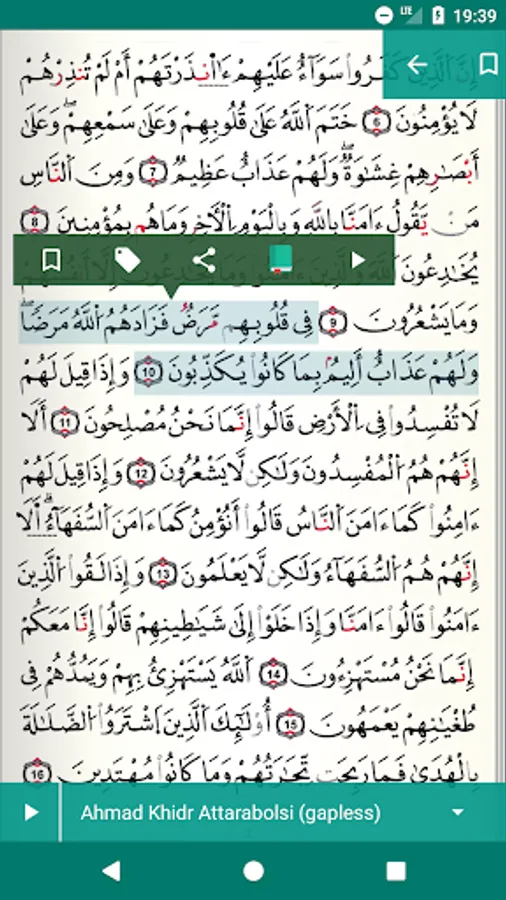 19:39
LTE
إِنَّ ٱلَّذِينَ كَفَرُوا۟ سَوَآءٌ عَلَيْهِمْ ءَا۬نذَرْتَهُمْ أَمْ لَمْ تُنذِرْهُمْ
لَا يُؤْمِنُونَ 6 خَتَمَ ٱللَّهُ عَلَىٰ قُلُوبِهِمْ وَعَلَىٰ سَمْعِهِمْ وَعَلَىٰ
أَبْصَـٰرِهِمْ غِشَـٰوَةٌ وَلَهُمْ عَذَابٌ عَظِيمٌ 7 وَمِنَ ٱلنَّاسِ
مَن يَقُولُ ءَامَنَّا بِٱللَّهِ وَبِٱلْيَوْمِ ٱلْأَخِرِ وَمَا هُم بِمُؤْمِنِينَ 8
يُخَـٰدِعُونَ ٱللَّهَ وَٱلَّذِينَ
وَمَا يَشْعُرُونَ 9 فِى قُلُوبِهِم مَّرَضٌ فَزَادَهُمُ ٱللَّهُ مَرَضًا
وَلَهُمْ عَذَابٌ أَلِيمٌ بِمَا كَانُوا۟ يُكَذِّبُونَ 10 وَإِذَا قِيلَ لَهُمْ
لَا تُفْسِدُوا۟ فِى ٱلْأَرْضِ قَالُوٓا۟ إِنَّمَا نَحْنُ مُصْلِحُونَ 11 أَلَا
إِنَّهُمْ هُمُ ٱلْمُفْسِدُونَ وَلَـٰكِن لَّا يَشْعُرُونَ 12 وَإِذَا قِيلَ لَهُمْ
ءَامِنُوا۟ كَمَا ءَامَنَ ٱلنَّاسُ قَالُوٓا۟ أَنُؤْمِنُ كَمَا ءَامَنَ ٱلسُّفَهَآءُ أَلَا
إِنَّهُمْ هُمُ ٱلسُّفَهَآءُ وَلَـٰكِن لَّا يَعْلَمُونَ 13 وَإِذَا لَقُوا۟ ٱلَّذِينَ
ءَامَنُوا۟ قَالُوٓا۟ ءَامَنَّا وَإِذَا خَلَوْا۟ إِلَىٰ شَيَـٰطِينِهِمْ قَالُوٓا۟ إِنَّا مَعَكُمْ
إِنَّمَا نَحْنُ مُسْتَهْزِءُونَ 14 ٱللَّهُ يَسْتَهْزِئُ بِهِمْ وَيَمُدُّهُمْ فِى
طُغْيَـٰنِهِمْ يَعْمَهُونَ 15 أُو۟لَـٰٓئِكَ ٱلَّذِينَ ٱشْتَرَوُا۟ ٱلضَّلَـٰلَةَ
بِٱلْهُدَىٰ فَمَا رَبِحَت تِّجَـٰرَتُهُمْ وَمَا كَانُوا۟ مُهْتَدِينَ 16
Ahmad Khidr Attarabolsi (gapless)